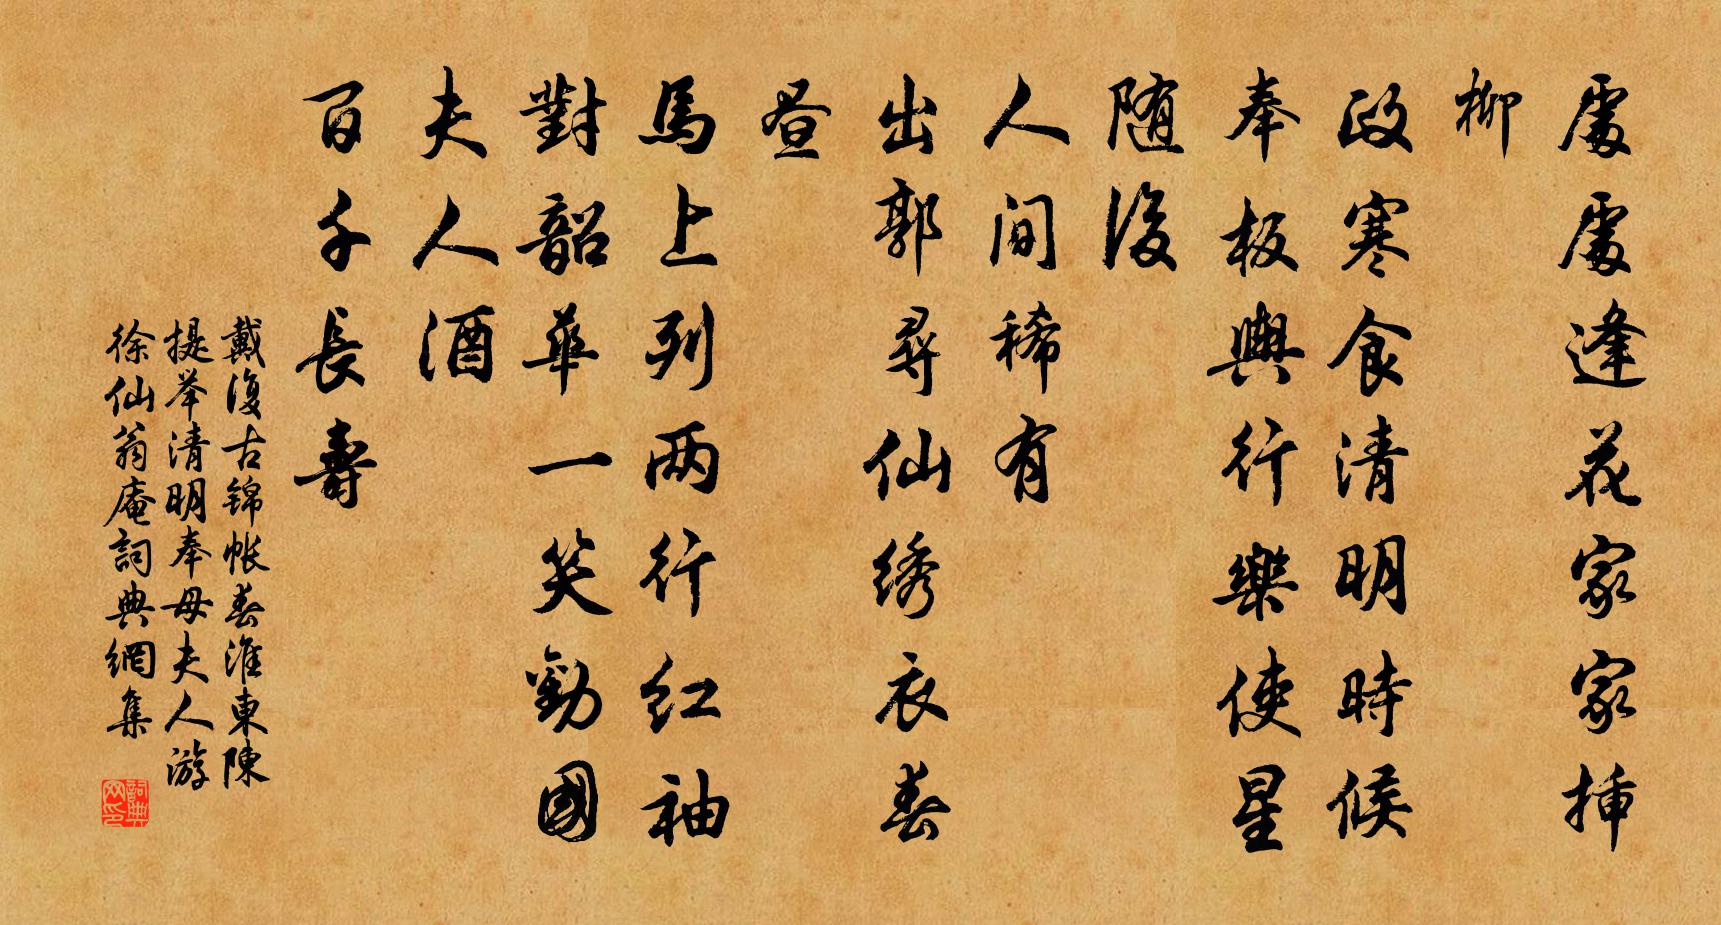 處處逢花家家插
柳
政寒食清明時候
奉板輿行樂使星
随後
人间稀有
出郭尋仙绣衣春
昼
馬上列两行红袖
對韶華一笑勸國
夫人酒
百千長壽
戴復古锦帐春淮東陳
提举清明奉母夫人游
徐仙翁庵詞典網集
詞典
网印